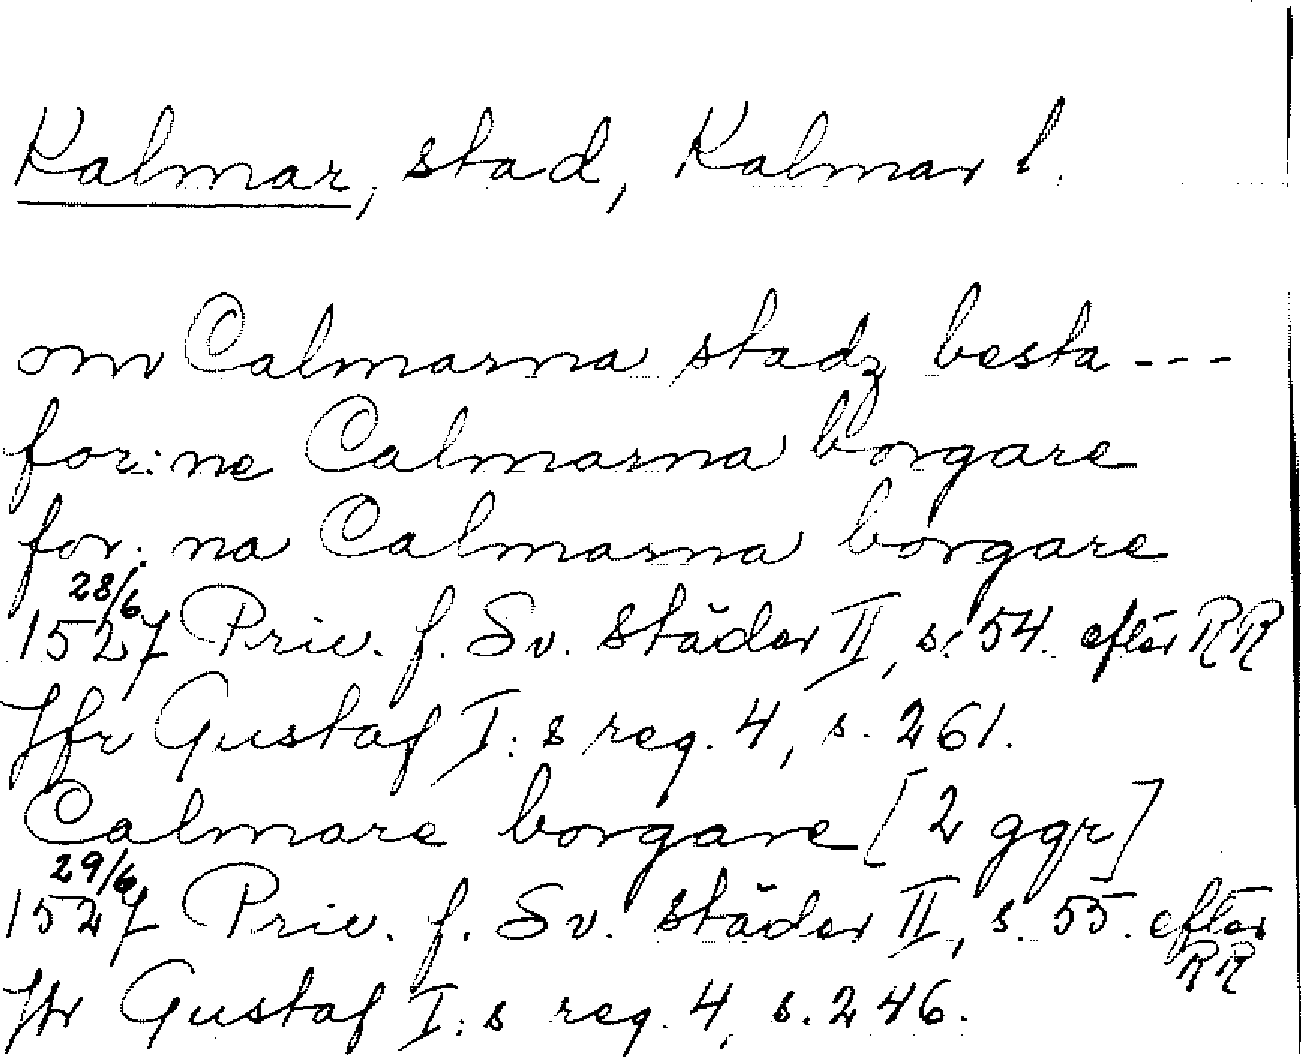 Kalmar, stad, Kalmar l.
om Calmarna stadz besta ---
for:ne Calmarna borgare
for:na Calmarna borgare
28/6 1527 Priv. f. Sv. städer II, s. 54. efter RR
Jfr Gustaf I:s reg. 4, s. 261.
Calmare borgare [2 ggr]
29/6 1527 Priv. f. Sv. städer II, s. 55. efter RR
Jfr Gustaf I:s reg. 4, s. 246.